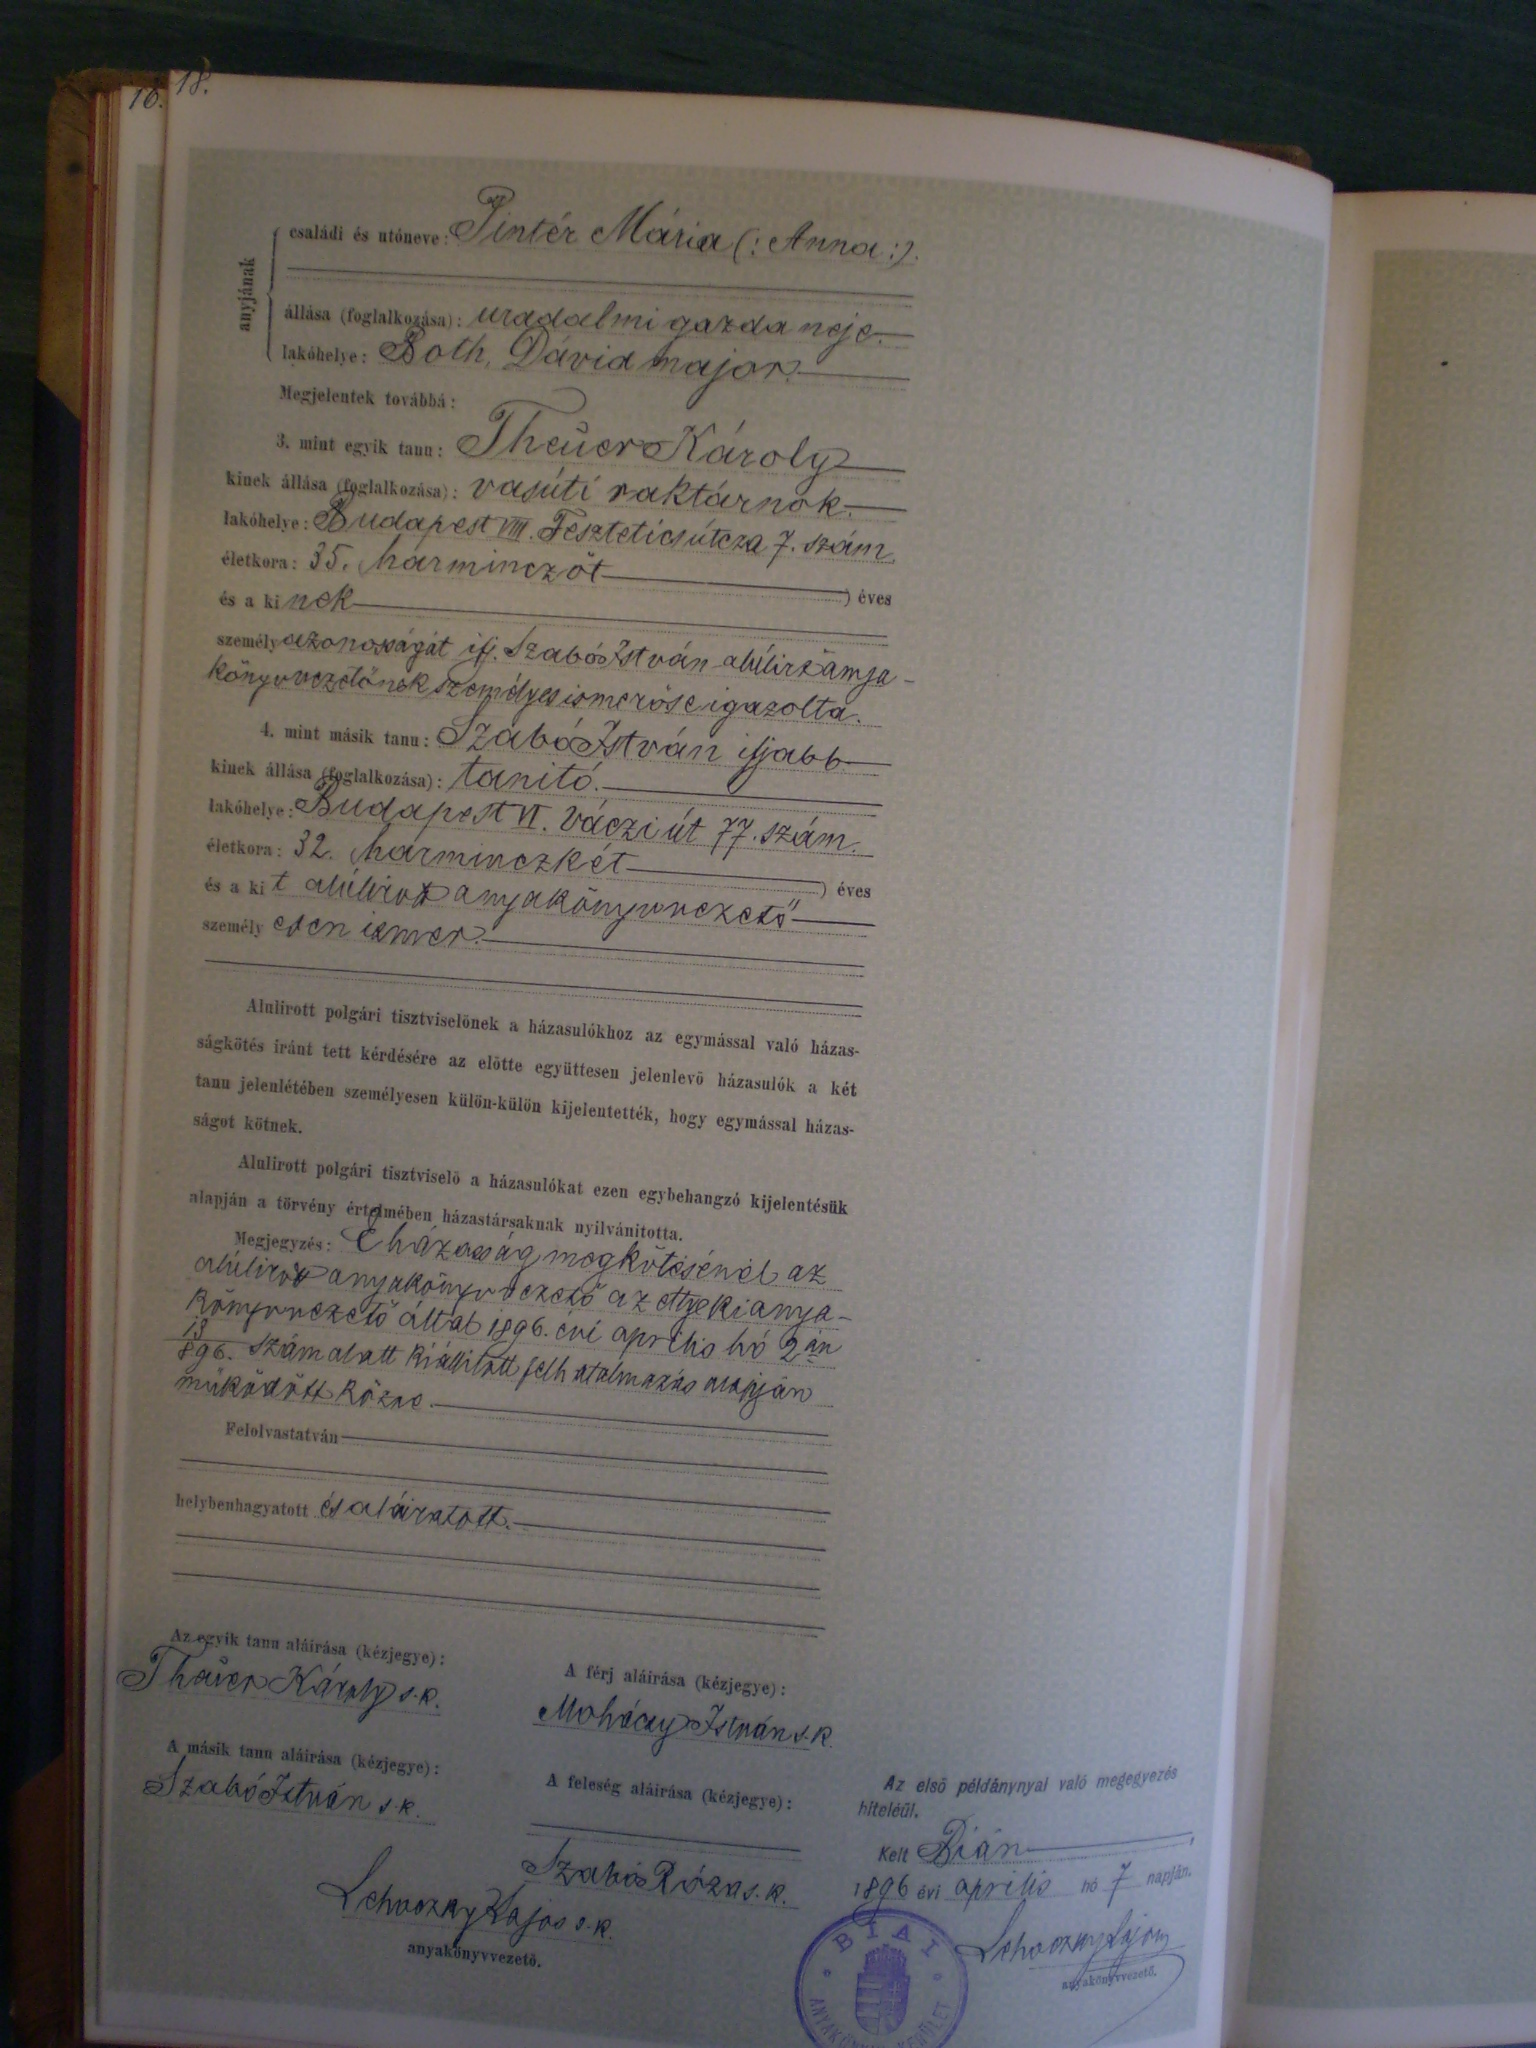 16.
18.
anyjának
családi és utóneve: Pintér Mária (: Anna :).
állása (foglalkozása): uradalmi gazda neje.
lakóhelye: Both, Dávid major.
Megjelentek továbbá:
3. mint egyik tanu: Theuer Károly
kinek állása (foglalkozása): vasúti raktárnok.
lakóhelye: Budapest VIII. Fesztetics útcza 7. szám
életkora: 35. harminczöt ) éves
és a kinek
személyazonosságát ifj. Szabó István alúlirt anya-
könyvvezetőnek személyes ismerőse igazolta.
4. mint másik tanu: Szabó István ifjabb
kinek állása (foglalkozása): tanitó.
lakóhelye: Budapest VI. Váczi út 77. szám.
életkora: 32. harminczkét ) éves
és a kit alúlirott anyakönyvvezető
személyesen ismer.
Alulírott polgári tisztviselönek a házasulókhoz az egymással való házas-
ságkötés iránt tett kérdésére az elötte együttesen jelenlevö házasulók a két
tanu jelenlétében személyesen külön-külön kijelentették, hogy egymással házas-
ságot kötnek.
Alulírott polgári tisztviselö a házasulókat ezen egybehangzó kijelentésük
alapján a törvény értelmében házastársaknak nyilvánitotta.
Megjegyzés: E házasság megkötésénél az
alúlirott anyakönyvvezető az etyeki anya-
könyvvezető által 1896. évi április hó 2án
18/896. szám alatt kiállitott felhatalmazás alapján
működött közre.
Felolvastatván
helybenhagyatott és aláiratott.
Az egyik tanu aláírása (kézjegye):
Theuer Károly s.k.
A férj aláírása (kézjegye):
Mohácsy István s.k.
A másik tanu aláírása (kézjegye):
Szabó István s.k.
A feleség aláírása (kézjegye):
Szabó Róza s.k.
Lehoczky Lajos s.k.
anyakönyvvezetö.
Az elsö példánynyal való megegyezés
hiteléül.
Kelt Bián,
1896 évi április hó 7 napján.
Lehoczky Lajos
anyakönyvvezetö.
BIAI
ANYAKÖNYVI KERÜLET